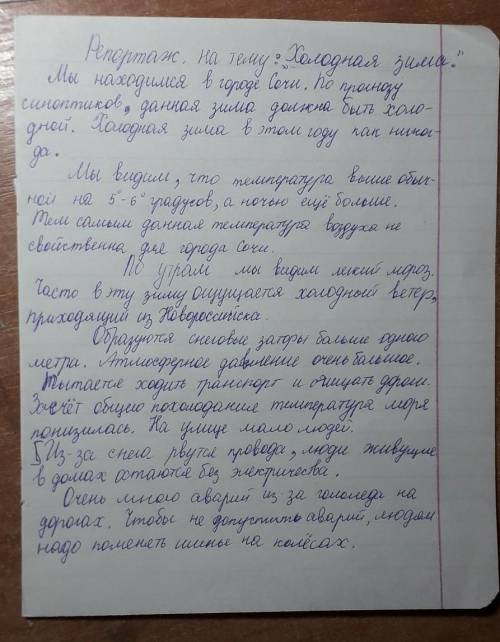 Репортаж. на тему: "Холодная зима."
Мы находимся в городе Сочи. По прогнозу
синоптиков, данная зима должна быть холо-
дной. Холодная зима в этом году как никог-
да.
Мы видим, что температура выше обыч-
ной на 5°-6° градусов, а ночью ещё больше.
Тем самым данная температура воздуха не
свойственна для города Сочи.
По утрам мы видим легкий мороз.
Часто в эту зиму ощущается холодный ветер,
приходящий из Новороссийска.
Образуются снеговые заторы больше одного
метра. Атмосферное давление очень большое.
Пытается ходить транспорт и очищать дороги.
За счёт общего похолодания температура моря
понизилась. На улице мало людей.
Из-за снега рвутся провода, люди живущие
в домах остаются без электричества.
Очень много аварий из-за гололеда на
дорогах. Чтобы не допустить аварий, людям
надо поменять шины на колёсах.